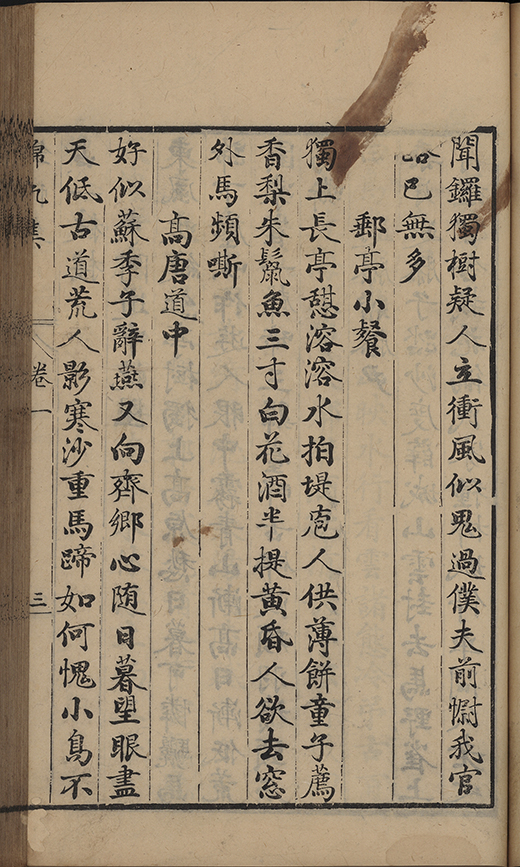 聞鑼獨樹疑人立衝風似鬼過僕夫前慰我官
已無多
郵亭小餐
獨上長亭憇溶溶水拍堤庖人供薄餅童子薦
香梨朱鬣魚三寸白花酒半提黃昏人欲去窓
外馬頻嘶
高唐道中
好似蘇季子辭燕又向齊鄉心随日暮望眼盡
天低古道荒人影寒沙重馬蹄如何愧小鳥不
集 卷一 三